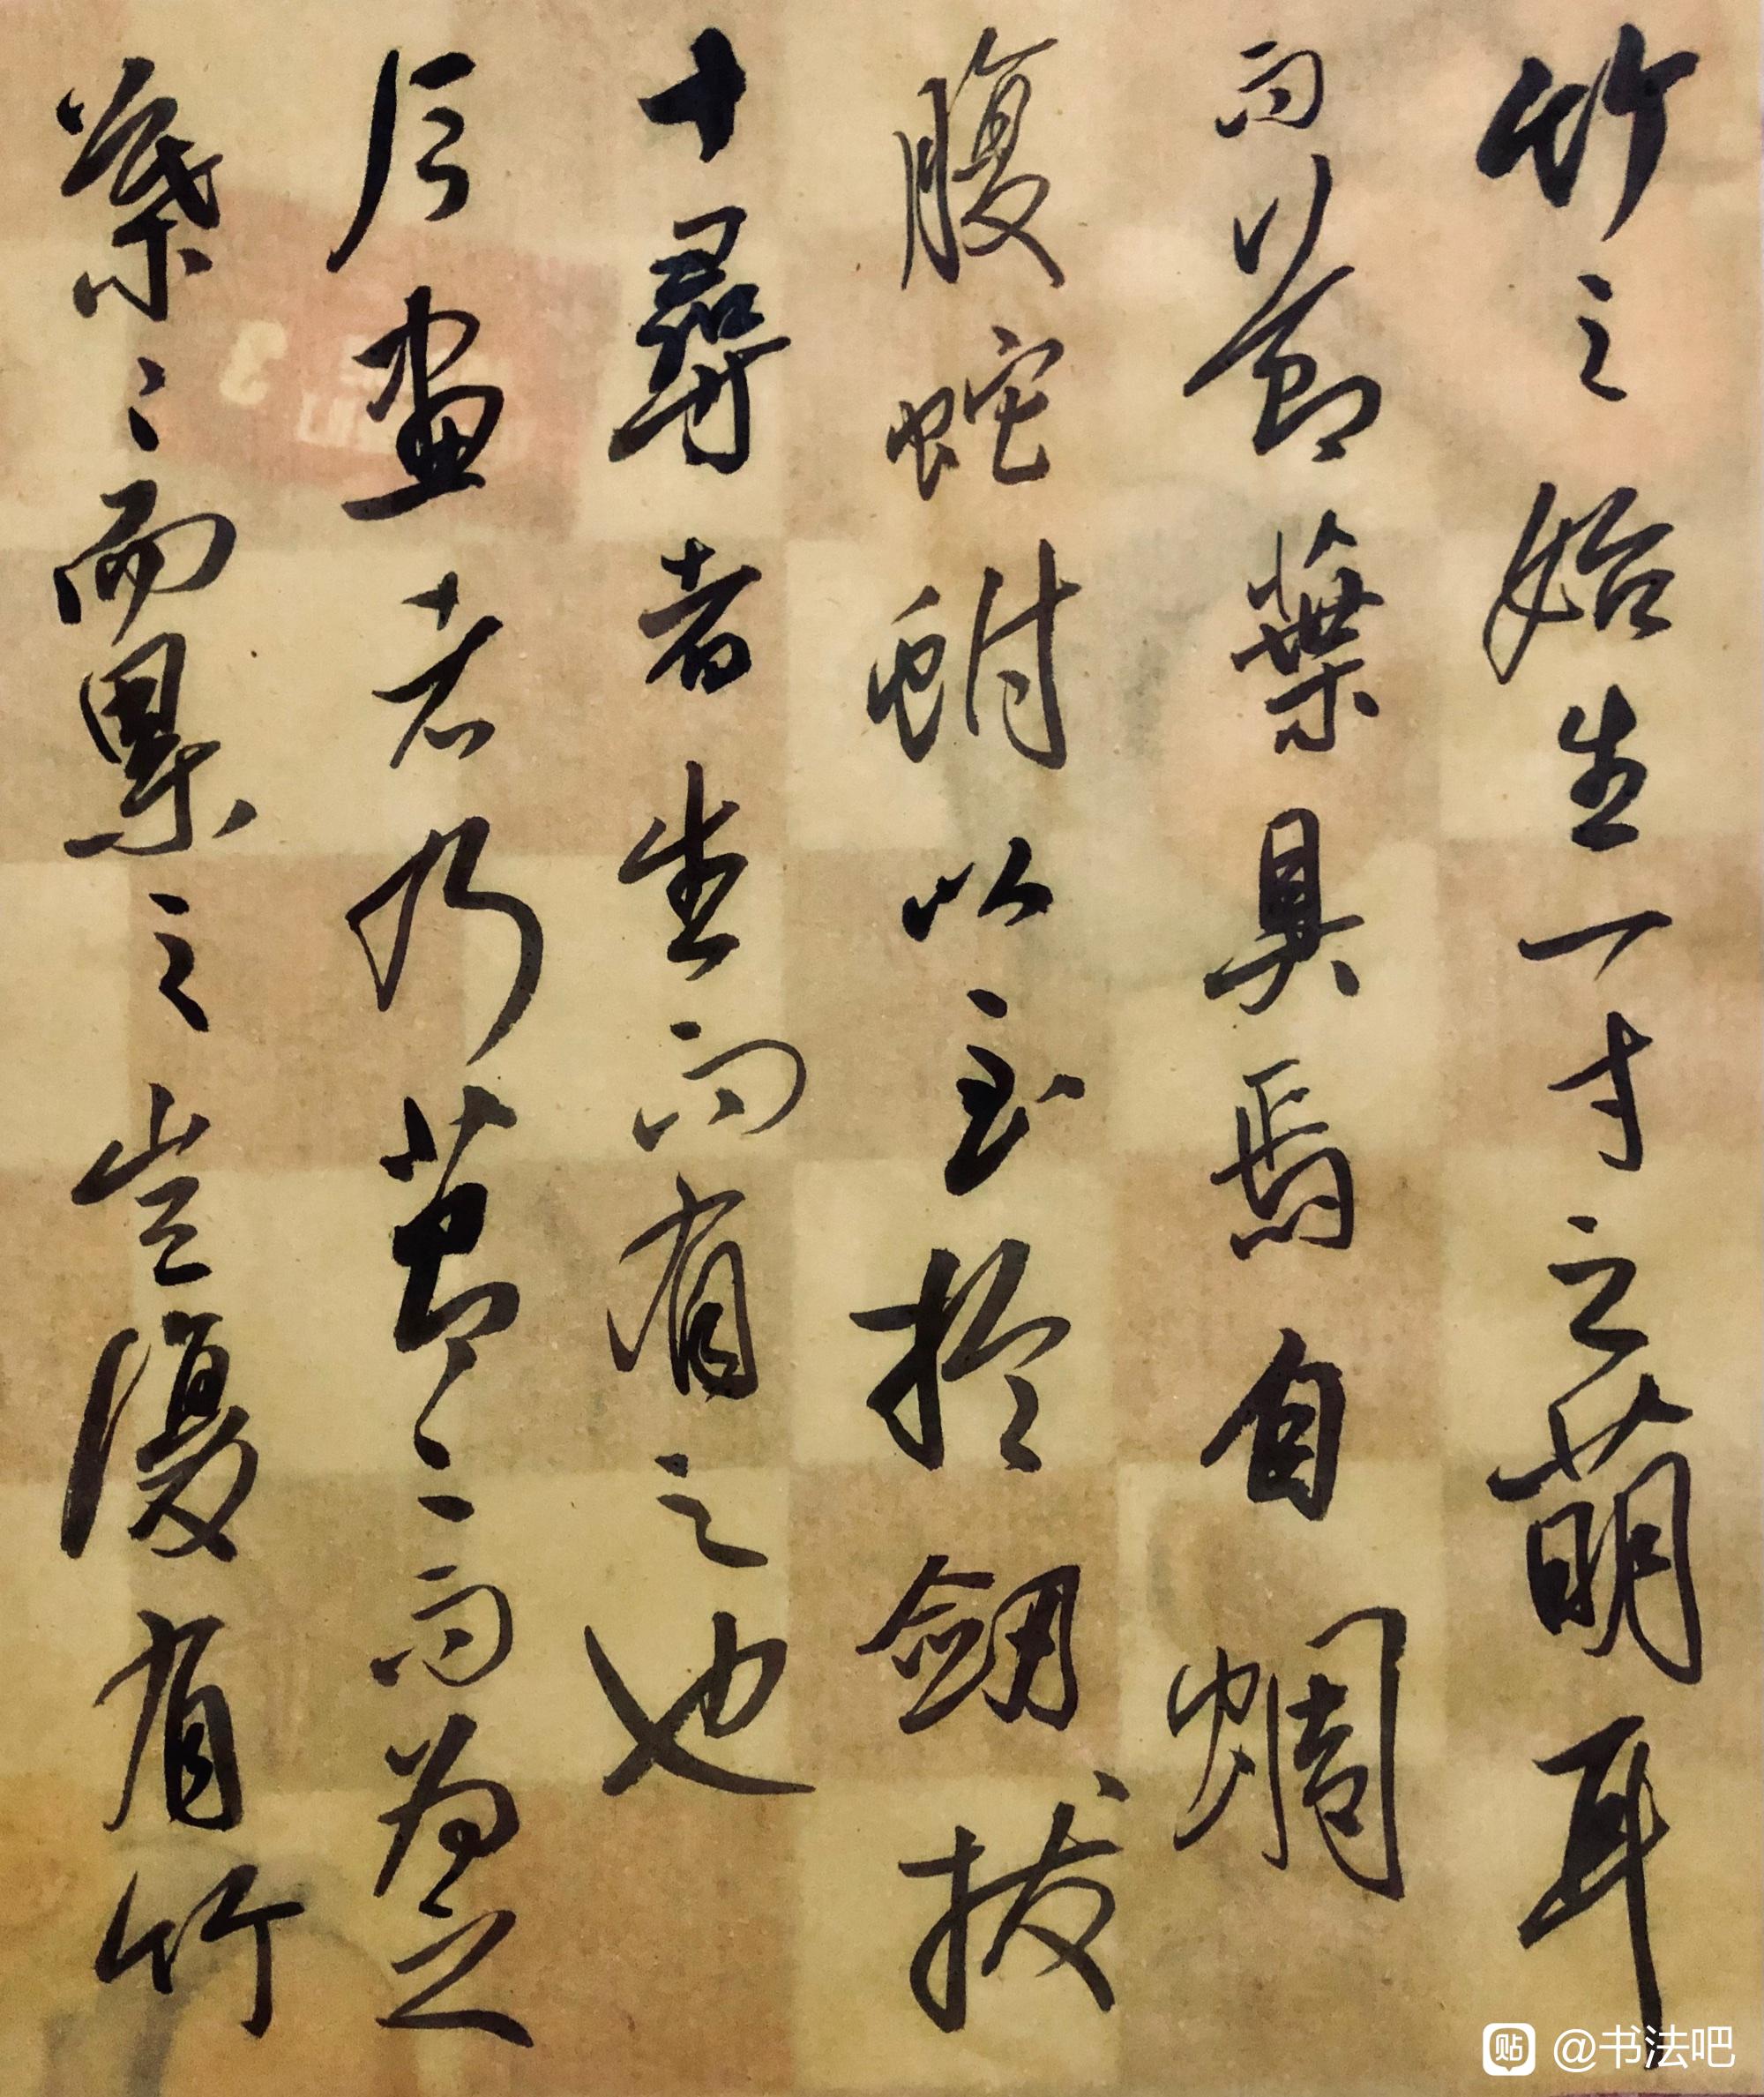 竹之始生一寸之萌耳
而節葉具焉自蜩
腹蛇蚹以至於劒拔
十尋者生而有之也
今畫者乃節〻而為之
葉〻而累之豈復有竹
贴 @书法吧